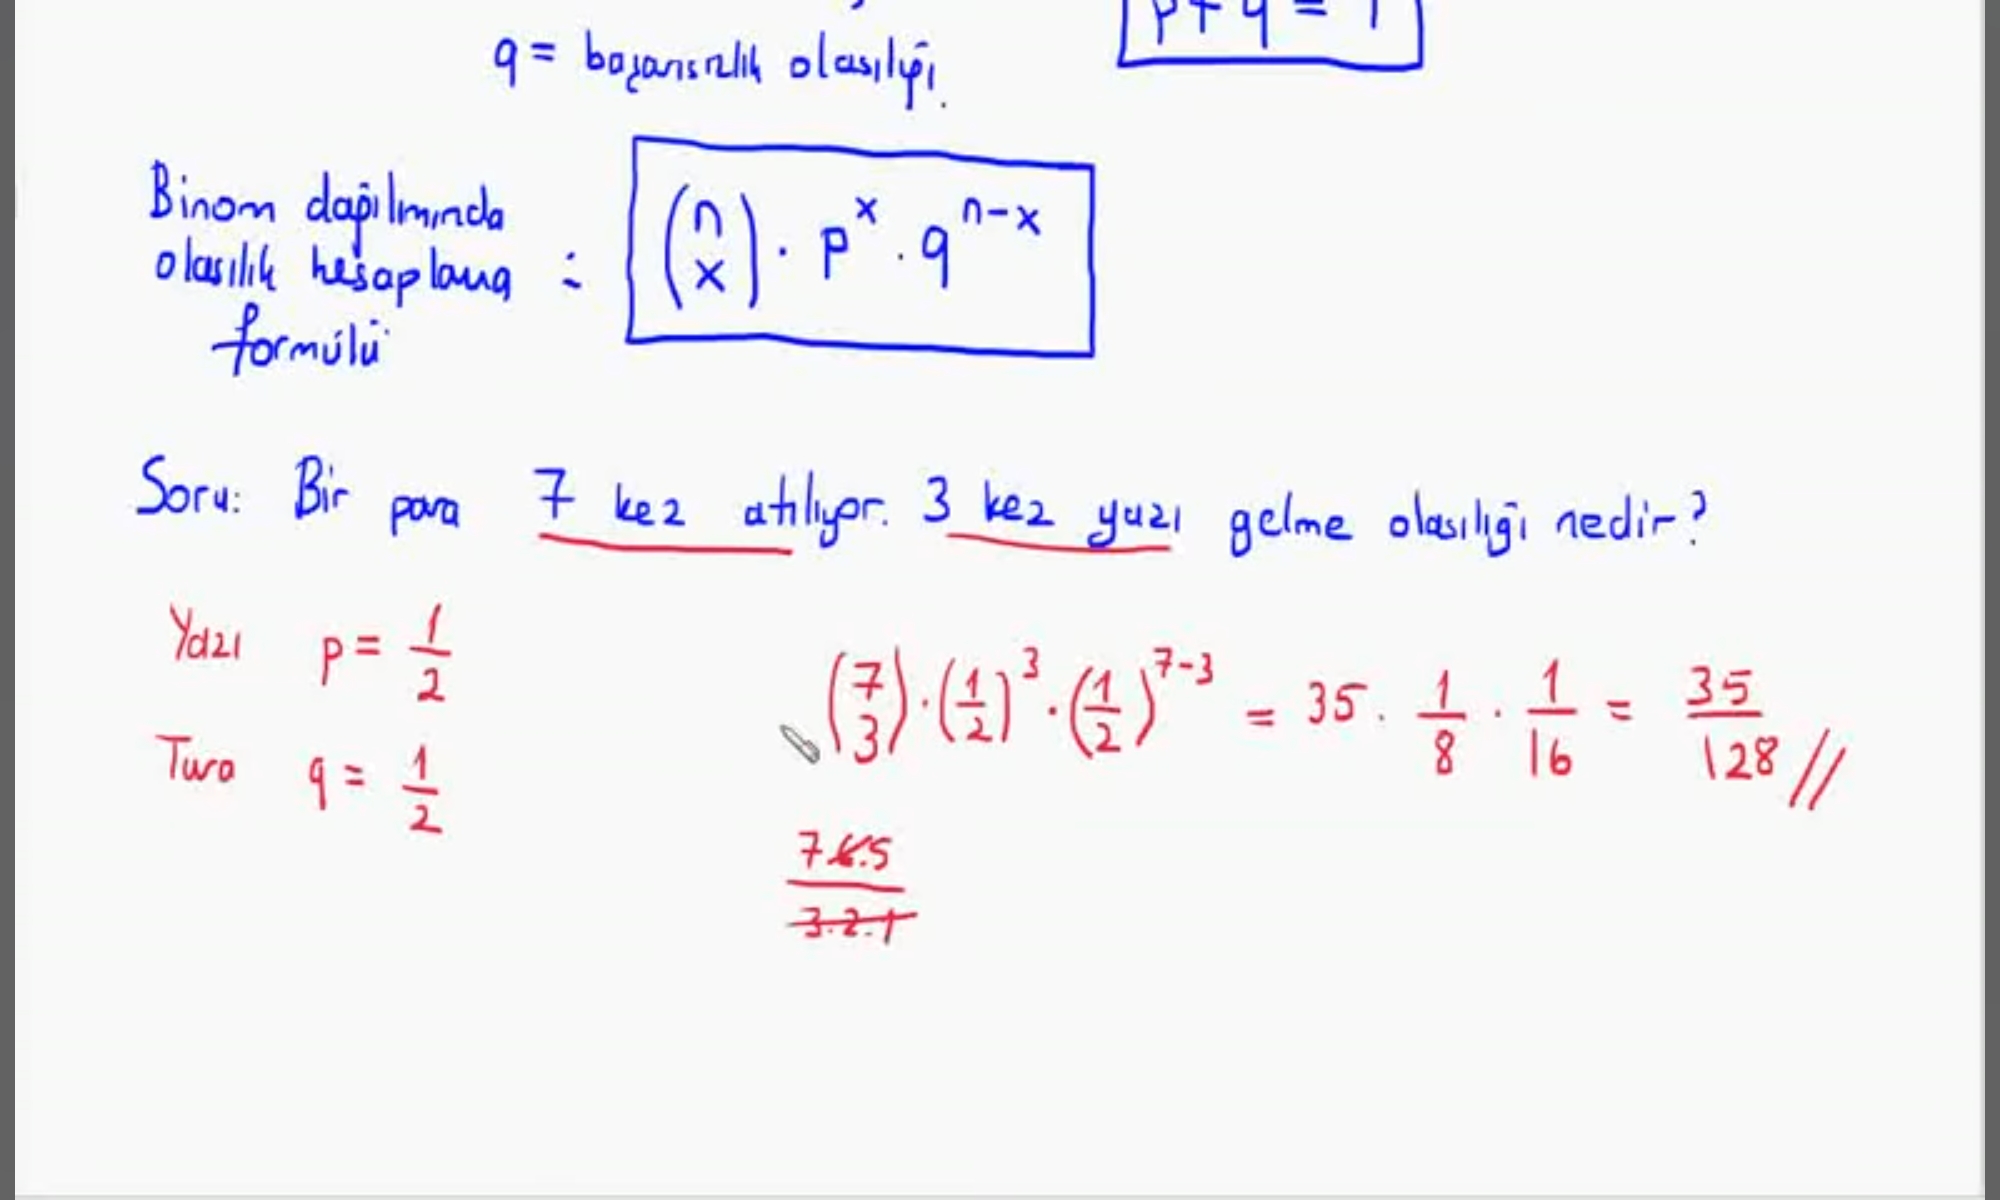 p + q = 1
q = başarısızlık olasılığı.
Binom dağılımında
olasılık hesaplama
formülü
= (n x) . p^x . q^(n-x)
Soru: Bir para 7 kez atılıyor. 3 kez yazı gelme olasılığı nedir?
Yazı p = 1/2
Tura q = 1/2
(7 3) . (1/2)^3 . (1/2)^(7-3) = 35 . 1/8 . 1/16 = 35/128 //
7.6.5
3.2.1